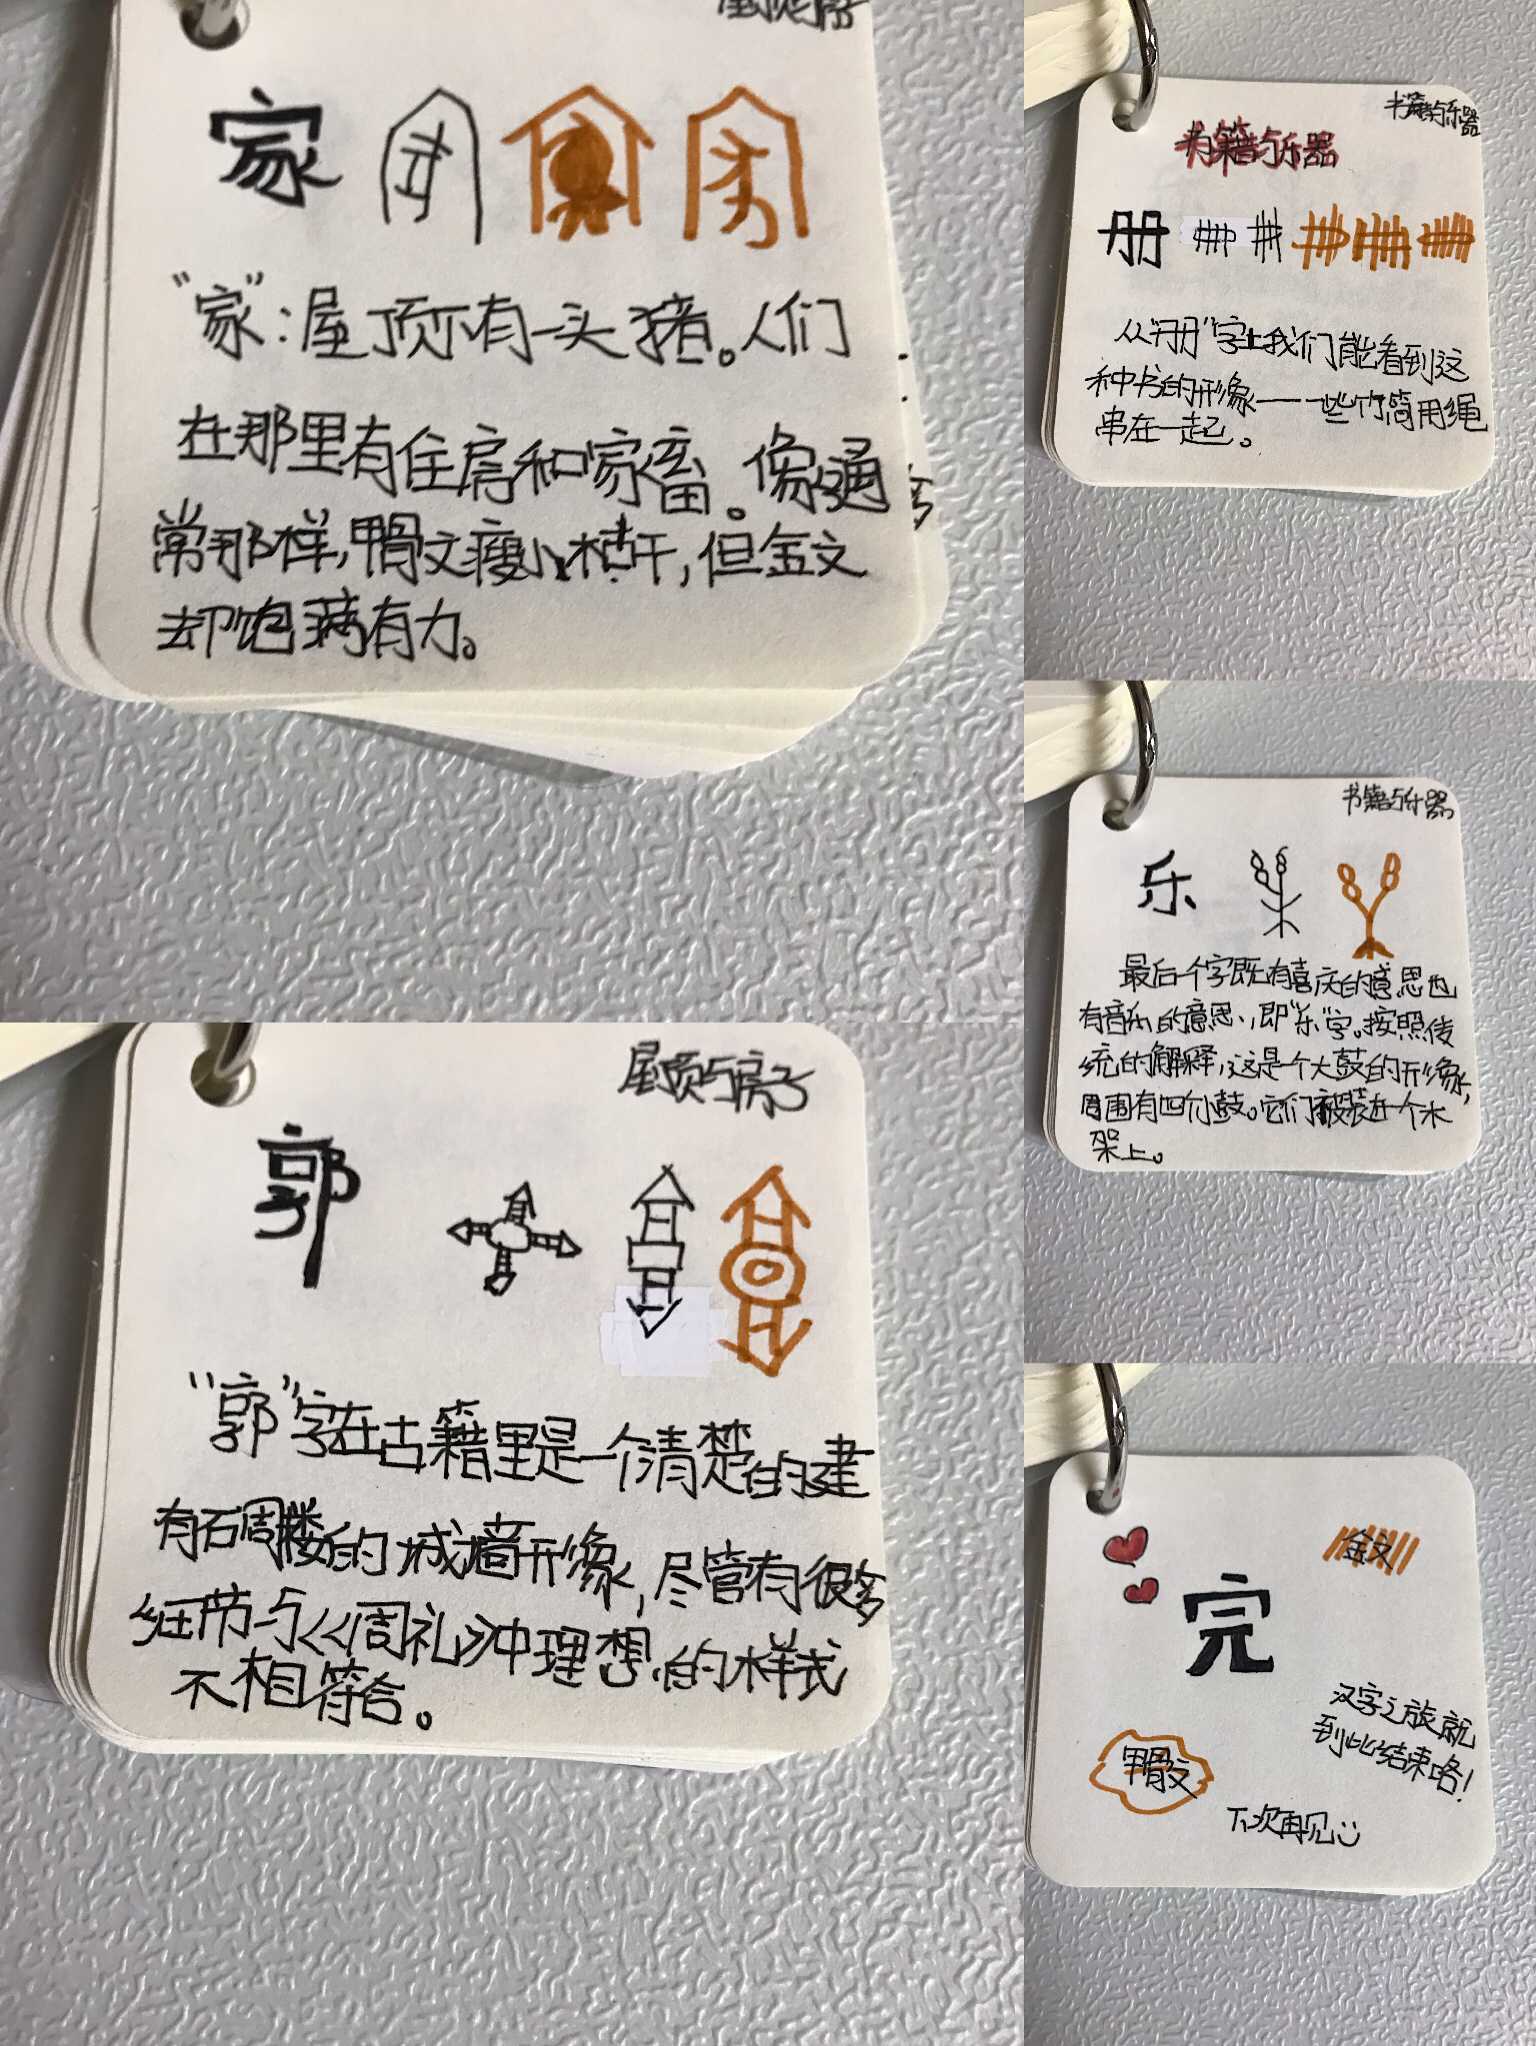 家
"家":屋顶下有一头猪。人们
在那里有住房和家畜。像通
常那样,甲骨文瘦小枯干,但金文
却饱满有力。
屋顶与房子
郭
"郭"字在古籍里是一个清楚的建
有石雕楼的城墙形象,尽管有很多
细节与《周礼》中理想的样式
不相符合。
书籍与乐器
书籍与乐器
册
从"册"字上我们能看到这
种书的形象——一些竹简用绳
串在一起。
书籍与乐器
乐
最后一个字既有喜庆的意思也
有音乐的意思,即"乐"字。按照传
统的解释,这是一个大鼓的形象,
周围有四个小鼓。它们被装在一个木
架上。
金文
完
汉字之旅就
到此结束咯!
甲骨文
下次再见